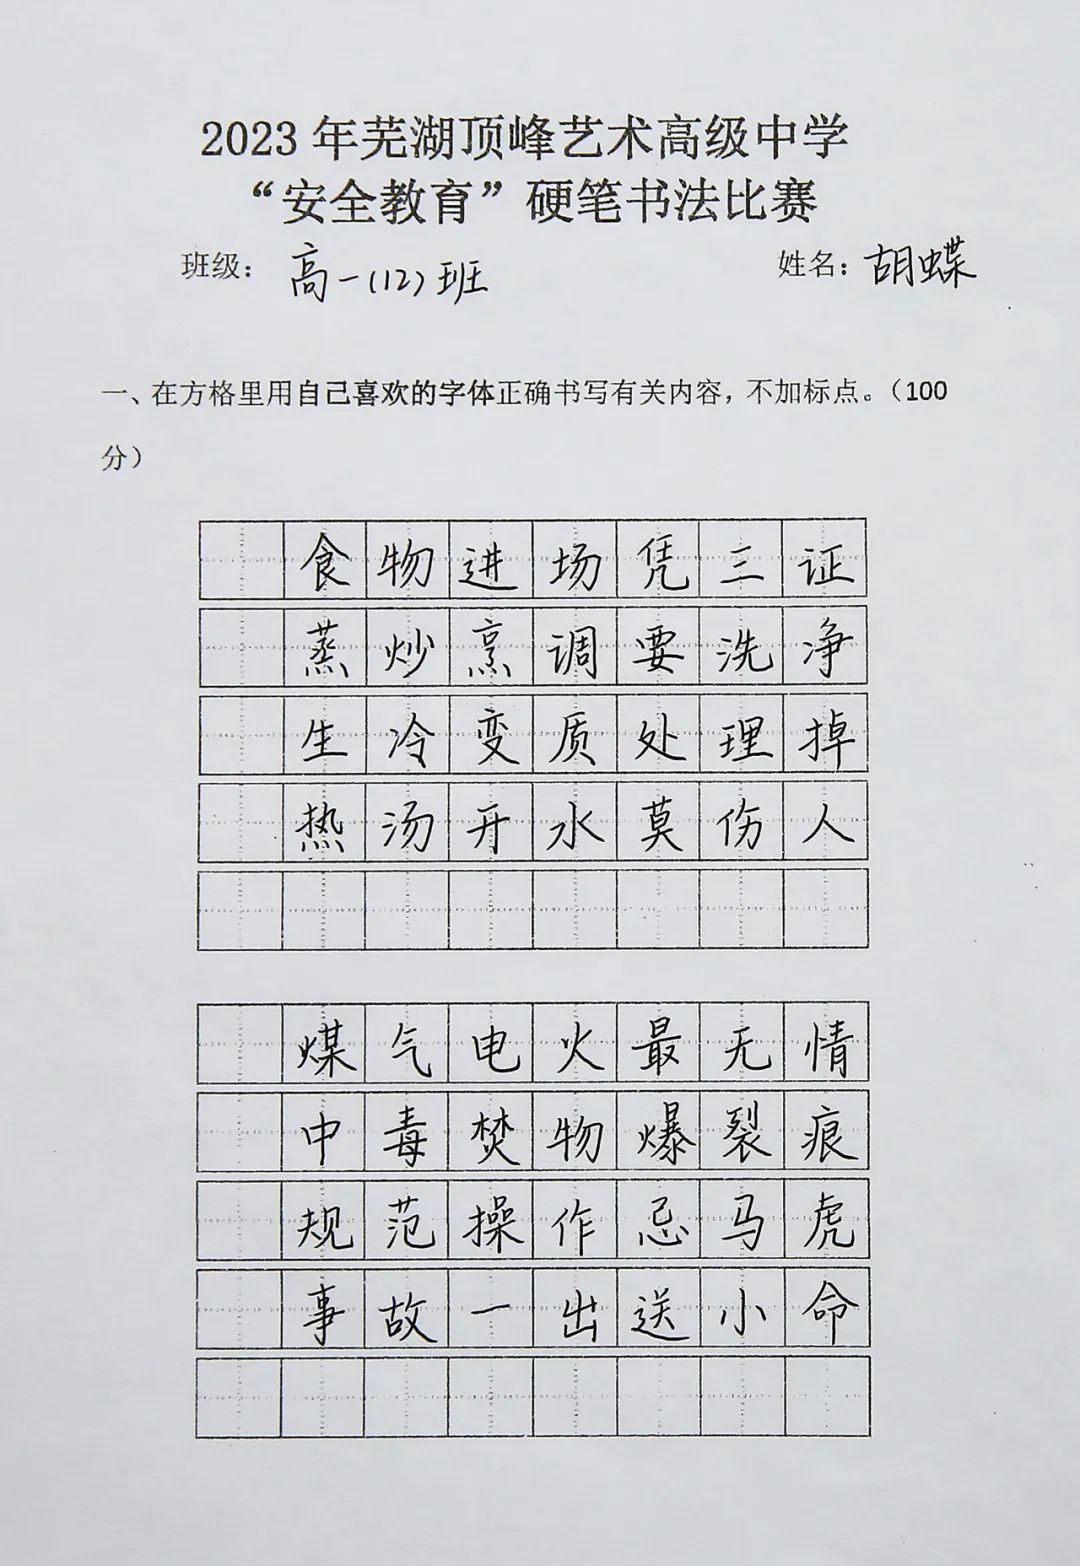 2023年芜湖顶峰艺术高级中学
“安全教育”硬笔书法比赛
班级：高一(12)班 姓名：胡蝶
一、在方格里用自己喜欢的字体正确书写有关内容，不加标点。（100
分）
食物进场凭三证
蒸炒烹调要洗净
生冷变质处理掉
热汤开水莫伤人
煤气电火最无情
中毒焚物爆裂痕
规范操作忌马虎
事故一出送小命